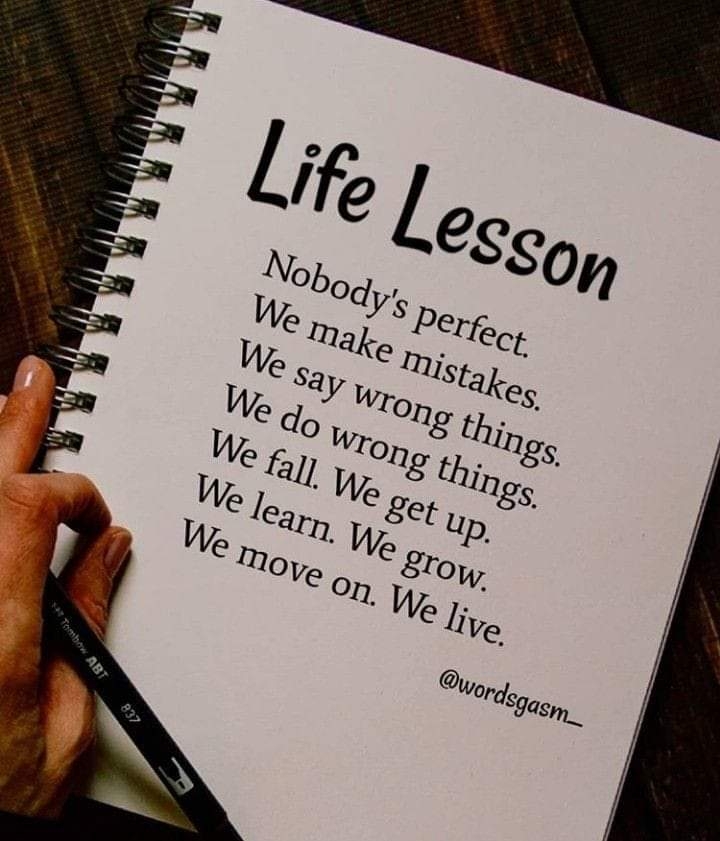 Life Lesson
Nobody's perfect.
We make mistakes.
We say wrong things.
We do wrong things.
We fall. We get up.
We learn. We grow.
We move on. We live.
@wordsgasm_
Tombow ABT
837